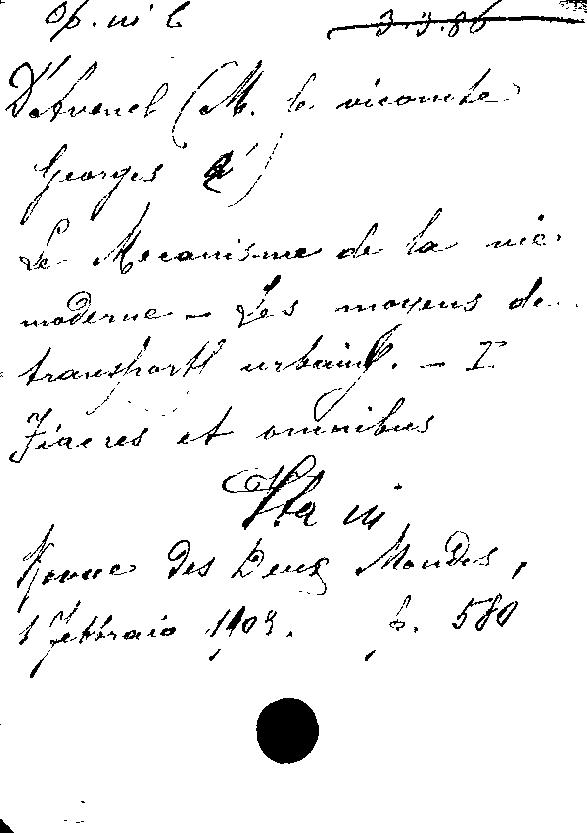 Op. in 6 3.3.86
D'Avenel (M. le vicomte
Georges d')
Le Mecanisme de la vie
moderne - Les moyens de
transports urbains. - I
Fiacres et omnibus
Sta in
Revue des Deux Mondes,
1 Febbraio 1903. p. 580